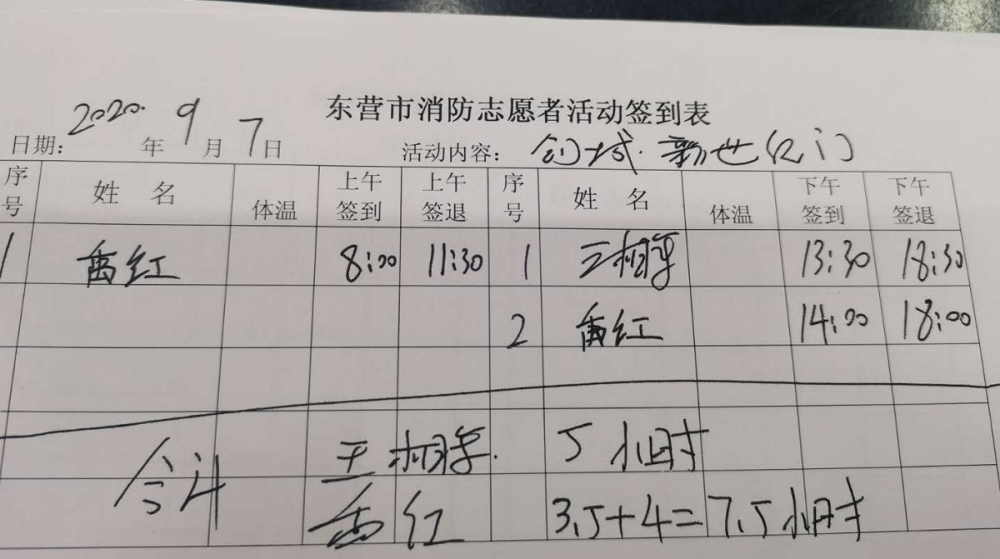 东营市消防志愿者活动签到表
日期： 2020. 年 9 月 7 日 活动内容： 创城.新世纪门
序号 姓 名 体温 上午签到 上午签退 序号 姓 名 体温 下午签到 下午签退
1 禹红 8:00 11:30 1 王相 13:30 18:30
2 禹红 14:00 18:00
合计 王相 5小时
禹红 3.5+4=7.5小时